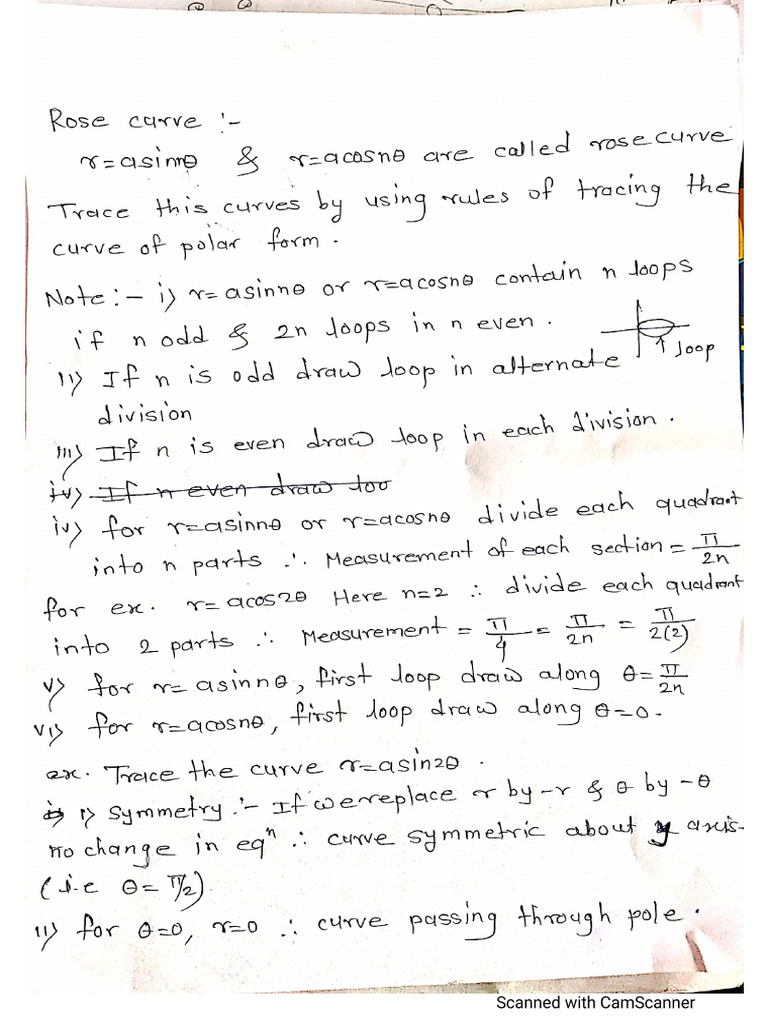 Rose curve :-
r=asinnθ & r=acosnθ are called rose curve
Trace this curves by using rules of tracing the
curve of polar form.
Note:- i) r= asinnθ or r=acosnθ contain n loops
if n odd & 2n loops in n even.
ii) If n is odd draw loop in alternate
↑ loop
division
iii) If n is even draw loop in each division.
iv) If n even draw loo
iv) for r=asinnθ or r=acosnθ divide each quadrant
into n parts ∴ Measurement of each section = π/2n
for ex. r= acos2θ Here n=2 ∴ divide each quadrant
into 2 parts ∴ Measurement = π/4 = π/2n = π/2(2)
v) for r= asinnθ, first loop draw along θ=π/2n
vi) for r=acosnθ, first loop draw along θ=0.
ex. Trace the curve r=asin2θ.
i) Symmetry :- If we replace r by -r & θ by -θ
no change in eqⁿ ∴ curve symmetric about y axis-
(i.e θ= π/2)
ii) for θ=0, r=0 ∴ curve passing through pole.
Scanned with CamScanner